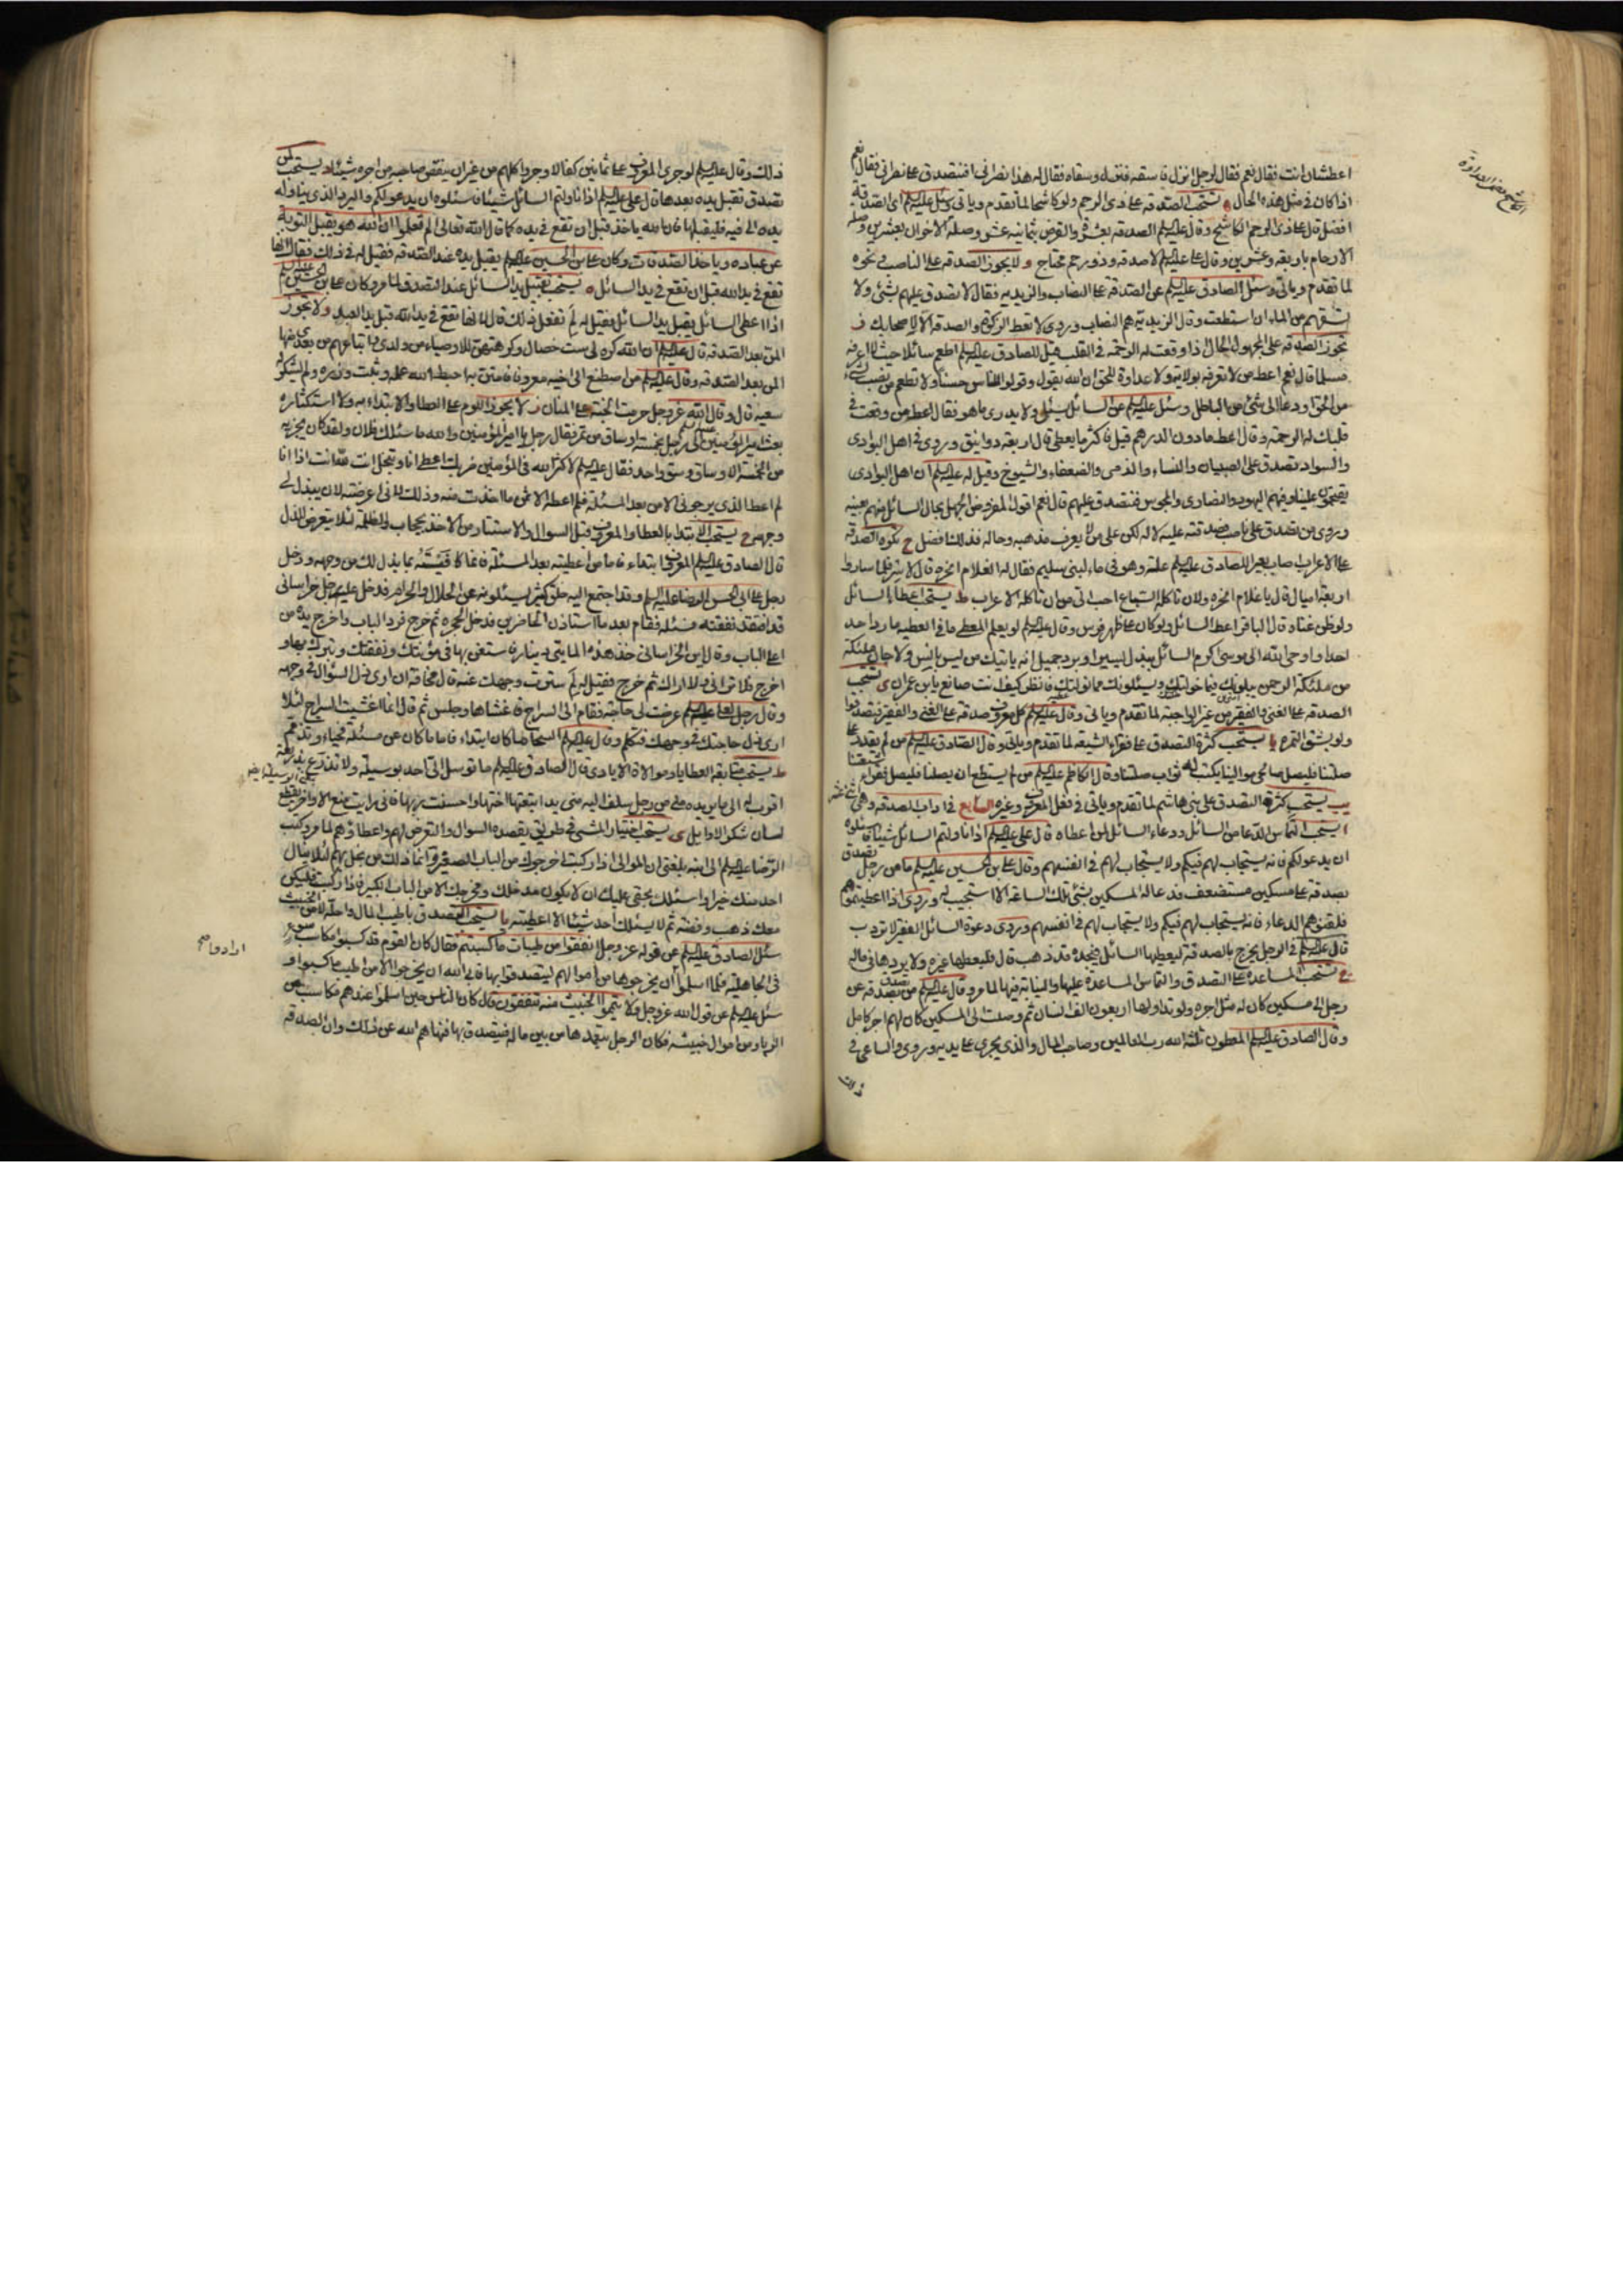 اعطشان انت فقال نعم فقال لرجل انزل فاسقه فنزل وسقاه فقال له هذا نصراني افتتصدق على نصراني فقال نعم
اذا كان في مثل هذه الحال ه تستحب الصدقة على ذي الرحم ولو كاشحا لما تقدم وياتي وسئل عليه السلم اي الصدقة
افضل قال على ذي الرحم الكاشح وقال عليه السلم الصدقة بعشرة والقرض بثمانية عشر وصلة الاخوان بعشرين وصلة
الارحام باربعة وعشرين وقال عليه السلم لا صدقة وذو رحم محتاج و لا يجوز الصدقة على الناصب في نحوه
لما تقدم وياتي وسئل الصادق عليه السلم عن الصدقة على النصاب والزيدية فقال لا تصدق عليهم بشيء ولا
تسقهم من الماء ان استطعت وقال الزيدية هم النصاب وروي لا تعط الزكوة والصدقة الا لاصحابك ز
تجوز الصدقة على المجهول الحال اذا وقعت له الرحمة في القلب قيل للصادق عليه السلم اطعم سائلا لا اعرفه
مسلما قال نعم اعط من لا تعرفه بولاية ولا عداوة للحق ان الله يقول وقولوا للناس حسنا ولا تطعم من نصب لشيء
من الحق او دعا الى شيء من الباطل وسئل عليه السلم عن السائل يسئل ولا يدرى ما هو فقال اعط من وقعت في
قلبك له الرحمة وقال اعطه ما دون الدرهم قيل فاكثر ما يعطى قال اربعة دوانيق وروي في اهل البوادي
والسواد تصدق على الصبيان والنساء والزمنى والضعفاء والشيوخ وقيل له عليه السلم ان اهل البوادي
يقتحمون علينا وفيهم اليهود والنصارى والمجوس فنتصدق عليهم قال نعم اقول المفروض الجهل بحال السائل منهم بعينه
وروي من تصدق على ناصب فصدقته عليه لا له لكن على من لا يعرف مذهبه وحاله فذلك افضل ح تكره الصدقة
اربعة اميال قال يا غلام انحره ولان تاكله السباع احب الي من ان تاكله الاعراب ط يستحب اعطاء السائل
ولو ظن غناه قال الباقر اعط السائل ولو كان على ظهر فرس وقال عليه السلم لو يعلم المعطي ما في العطية ما رد احد
احدا واوحى الله الى موسى اكرم السائل ببذل يسير او برد جميل انه ياتيك من ليس بانس ولا جان ملئكة
من ملئكة الرحمن يبلونك فيما خولتك ويسئلونك مما نولتك فانظر كيف انت صانع يا بن عمران ى تستحب
الصدقة على الغني والفقير من غير الواجبة لما تقدم وياتي وقال عليه السلم كل معروف صدقة على الغني والفقير فتصدقوا
ولو بشق التمرة يا يستحب كثرة التصدق على فقراء الشيعة لما تقدم وياتي وقال الصادق عليه السلم من لم يقدر على
صلتنا فليصل صالحي موالينا يكتب له ثواب صلتنا وقال الكاظم عليه السلم من لم يستطع ان يصلنا فليصل فقراء شيعتنا
يب يستحب كثرة التصدق على بني هاشم لما تقدم وياتي في فعل المعروف وغيره السابع في اداب الصدقة وهي
ا يستحب التماس الدعاء من السائل ودعاء السائل لمن اعطاه قال علي عليه السلم اذا ناولتم السائل شيئا فسئلوه
ان يدعو لكم فانه يستجاب لهم فيكم ولا يستجاب لهم في انفسهم وقال علي بن الحسين عليه السلم ما من رجل تصدق
بصدقة على مسكين مستضعف فدعا له المسكين بشيء تلك الساعة الا استجيب له وروي اذا اعطيتموهم
فلقنوهم الدعاء فانه يستجاب لهم فيكم ولا يستجاب لهم في انفسهم وروي دعوة السائل الفقير لا ترد ب
قال عليه السلم في الرجل يخرج بالصدقة ليعطيها السائل فيجده قد ذهب قال فليعطها غيره ولا يردها في ماله
ج تستحب المساعدة على التصدق والتماس المساعدة عليها والنيابة فيها لما مر وقال عليه السلم من تصدق بصدقة عن
رجل الى مسكين كان له مثل اجره ولو تداولها اربعون الف انسان ثم وصلت الى المسكين كان لهم اجر كامل
وقال الصادق عليه السلم المعطون ثلثة الله رب العالمين وصاحب المال والذي يجري على يديه وروي والساعي في
ذلك
ذلك وقال عليه السلم لو جرى المعروف على ثمانين كفا لاوجروا كلهم من غير ان ينقص صاحبه من اجره شيئا د يستحب لمن
تصدق تقبيل يده بعدها قال علي عليه السلم اذا ناولتم السائل شيئا فسئلوه ان يدعو لكم وليرد الذي يناوله
يده الى فيه فليقبلها فان الله ياخذه قبل ان تقع في يده كما قال الله تعالى الم تعلموا ان الله هو يقبل التوبة
عن عباده وياخذ الصدقات وكان علي بن الحسين عليه السلم يقبل يده عند الصدقة فقيل له في ذلك فقال انها
تقع في يد الله قبل ان تقع في يد السائل ه يستحب تقبيل يد السائل عند التصدق لما مر وكان علي بن الحسين عليه السلم
اذا اعطى السائل يقبل يد السائل فقيل له لم تفعل ذلك قال لانها تقع في يد الله قبل يد العبد و لا يجوز
المن بعد الصدقة قال عليه السلم ان الله كره لي ست خصال وكرهتهن للاوصياء من ولدي واتباعهم من بعدي منها
المن بعد الصدقة وقال عليه السلم من اصطنع الى اخيه معروفا فامتن به احبط الله عمله وثبت وزره ولم يشكر له
سعيه قال وقال الله عز وجل حرمت الجنة على المنان ز لا يجوز اللوم على العطاء والابتداء به ولا استكثاره
بعث امير المؤمنين الى رجل بخمسة اوساق من تمر فقال رجل يا امير المؤمنين والله ما سئلك فلان ولقد كان يجزيه
من الخمسة الاوساق وسق واحد فقال عليه السلم لا كثر الله في المؤمنين ضربك اعطي انا وتبخل انت لله انت اذا انا
لم اعط الذي يرجوني الا من بعد المسئلة فلم اعطه الا ثمن ما اخذت منه وذلك لاني عرضته لان يبذل لي
وجهه ح يستحب الابتداء بالعطاء والمعروف قبل السوال والاستتار من الاخذ بحجاب والظلمة لئلا يتعرض للذل
قال الصادق عليه السلم المعروف ابتداء فاما من اعطيته بعد المسئلة فانما كافيته بما بذل لك من وجهه ودخل
رجل على ابي الحسن الرضا عليه السلم وقد اجتمع اليه خلق كثير يسئلونه عن الحلال والحرام فدخل عليه رجل خراساني
قد افتقد نفقته فسئله فقام بعد ما استاذن الحاضرين فدخل الحجرة ثم خرج فرد الباب واخرج يده من
اعلى الباب وقال اين الخراساني خذ هذه المايتي دينار فاستعن بها في مؤنتك ونفقتك وتبرك بها و
اخرج فلا تراني ولا اراك ثم خرج فقيل له لم سترت وجهك عنه قال مخافة ان ارى ذل السؤال في وجهه
وقال رجل لعلي عليه السلم عرضت لي حاجة فقام الى السراج فاغشاها وجلس ثم قال انما اغشيت السراج لئلا
ارى ذل حاجتك في وجهك فتكلم وقال عليه السلم السخاء ما كان ابتداء فاما ما كان عن مسئلة فحياء وتذمم
ط يستحب متابعة العطايا وموالاة الايادي قال الصادق عليه السلم ما توسل الي احد بوسيلة ولا تذرع بذريعة
اقرب له الى ما يريده مني من رجل سلف اليه مني يد اتبعتها اختها واحسنت ربها فاني رايت منع الاواخر يقطع
لسان شكر الاوايل ى يستحب اختيار المشي في طريق يقصده السوال والتعرض لهم واعطاؤهم لما مر وكتب
الرضا عليه السلم الى ابنه بلغني ان الموالي اذا ركبت اخرجوك من الباب الصغير وانما ذلك من بخل بهم لئلا ينال
احد منك خيرا واسئلك بحقي عليك ان لا يكون مدخلك ومخرجك الا من الباب الكبير فاذا ركبت فليكن
معك ذهب وفضة ثم لا يسئلك احد شيئا الا اعطيته يا يستحب التصدق باطيب المال واحله لا من الخبيث
سئل الصادق عليه السلم عن قوله عز وجل انفقوا من طيبات ما كسبتم فقال كان القوم قد كسبوا مكاسب سوء
في الجاهلية فلما اسلموا ارادوا ان يخرجوها من اموالهم ليتصدقوا بها فابى الله ان يخرجوا الا من اطيب ما كسبوا و
سئل عليه السلم عن قول الله عز وجل ولا تيمموا الخبيث منه تنفقون قال كان الناس حين اسلموا عندهم مكاسب من
الربا ومن اموال خبيثة فكان الرجل يتعمدها من بين ماله فيتصدق بها فنهاهم الله عن ذلك وان الصدقة
ارادوا صح